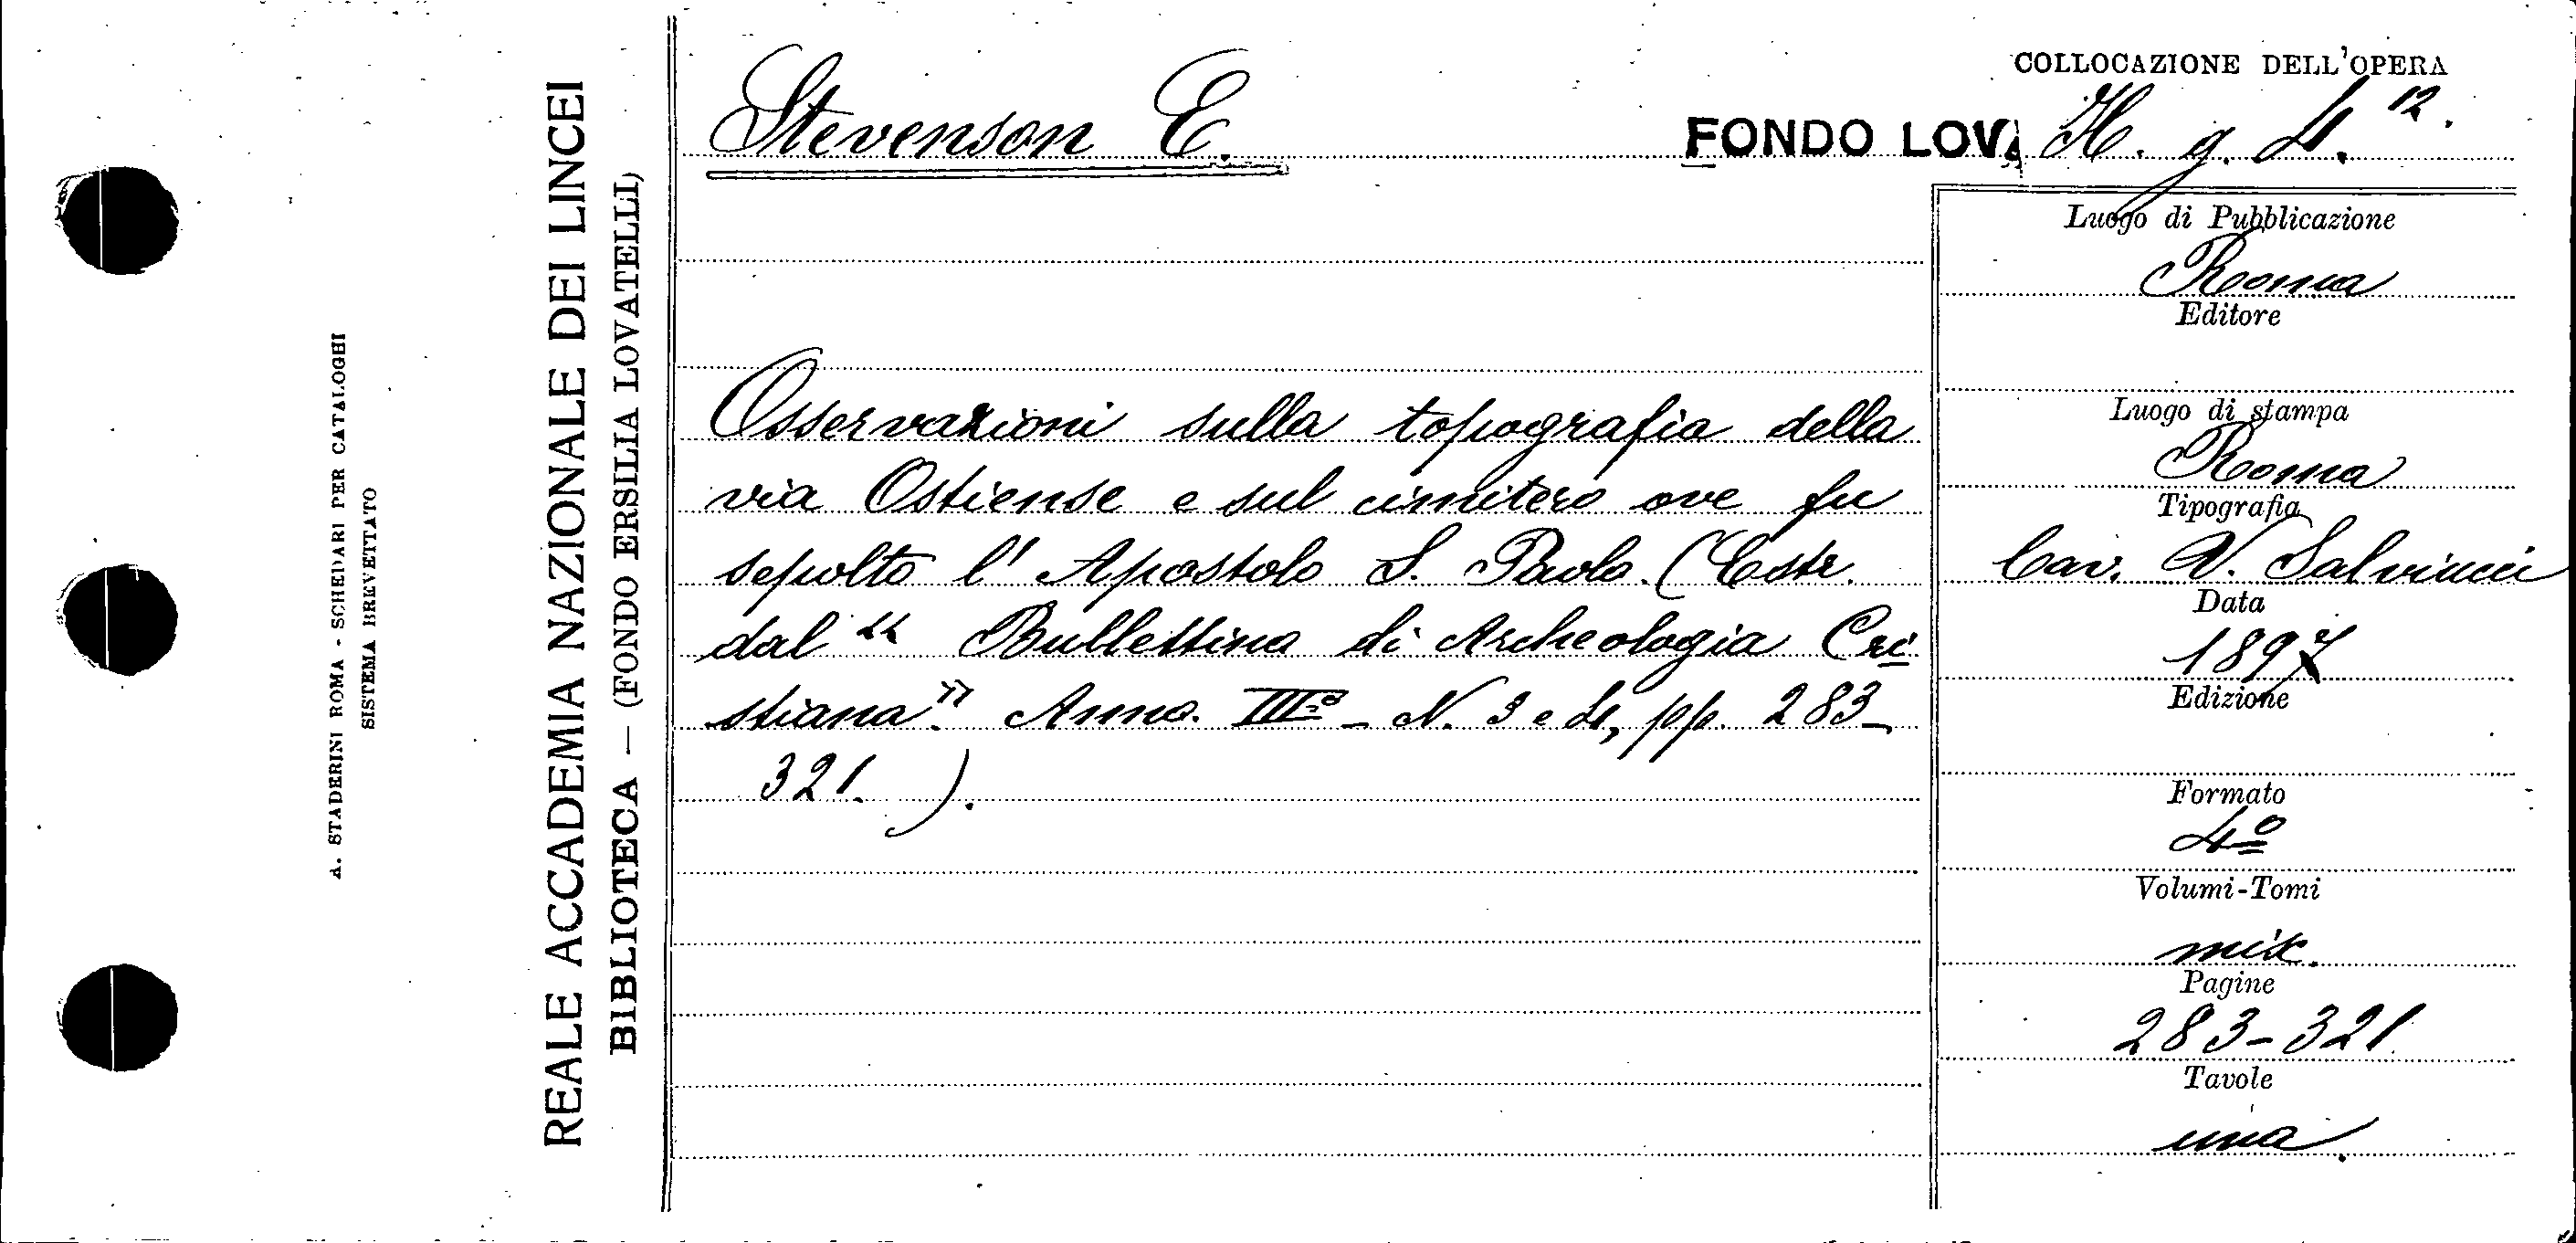 A. STADERINI ROMA - SCHEDARI PER CATALOGHI
SISTEMA BREVETTATO
REALE ACCADEMIA NAZIONALE DEI LINCEI
BIBLIOTECA — (FONDO ERSILIA LOVATELLI)
Stevenson E.
COLLOCAZIONE DELL'OPERA
FONDO LOV. H. g. 4. 12.
Osservazioni sulla topografia della
via Ostiense e sul cimitero ove fu
sepolto l' Apostolo S. Paolo. (Estr.
dal " Bullettino di Archeologia Cri
stiana". Anno. III.º - N. 3 e 4, pp. 283-
321. ).
Luogo di Pubblicazione
Roma
Editore
Luogo di stampa
Roma
Tipografia
Cav. V. Salviucci
Data
1897
Edizione
Formato
4º
Volumi-Tomi
mik.
Pagine
283-321
Tavole
una.